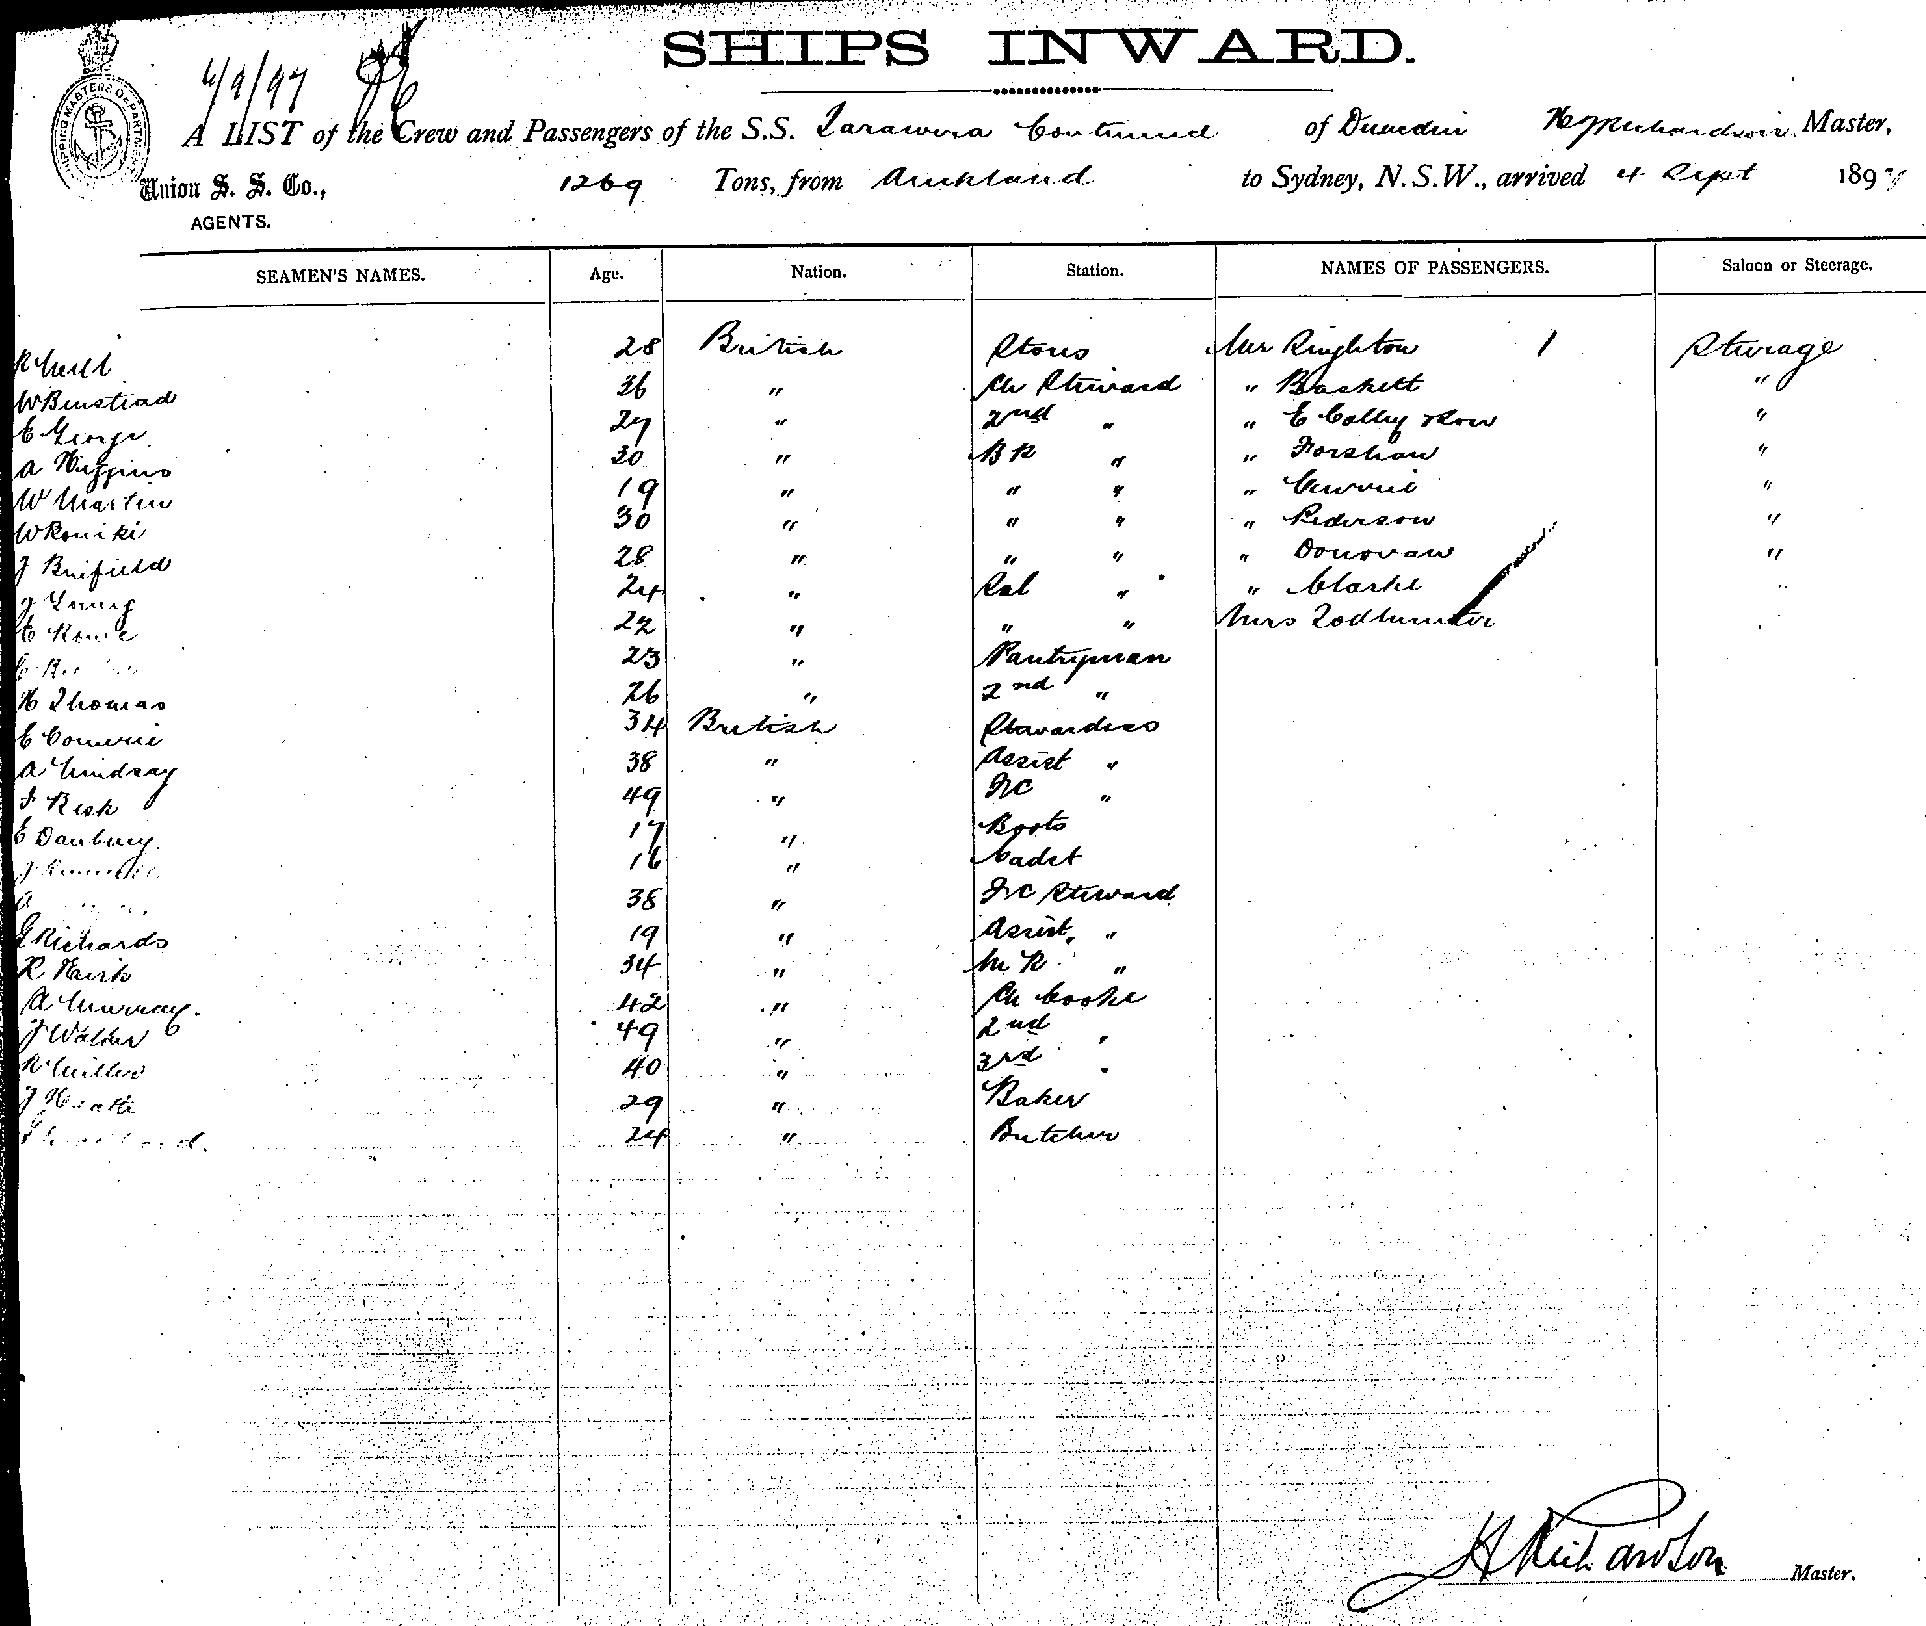 SHIPS INWARD.
4/9/97
A LIST of the Crew and Passengers of the S.S. Tarawera Continued of Dunedin H J Richardson Master,
Union S. S. Co., 1269 Tons, from Auckland to Sydney, N.S.W., arrived 4 Sept 1897
AGENTS.
SEAMEN'S NAMES. Age. Nation. Station. NAMES OF PASSENGERS. Saloon or Steerage.
28 British Stores Mr Ringleton 1 Steerage
W Binstead 36 " Ch Steward " Baskett "
C George 27 " 2nd " " E Colley & Son "
A Higgins 30 " BR " " Forshaw "
W Martin 19 " " " " Currie "
W 30 " " " " Pederson "
J 28 " " " " Donovan "
J Young 24 " Sal " " Clarke "
C 22 " " " Mrs Todhunter
23 " Pantryman
H Thomas 26 " 2nd "
C Comrie 34 British Stewardess
A Lindsay 38 " Assist "
Risk 49 " FC "
E Danbury. 17 " Boots
J 16 " Cadet
A 38 " FC Steward
G Richards 19 " Assist. "
R 34 " M R "
A Murray. 42 " Ch Cooke
J Walker 49 " 2nd "
R Miller 40 " 3rd "
J 29 " Baker
24 " Butcher
H Richardson Master.